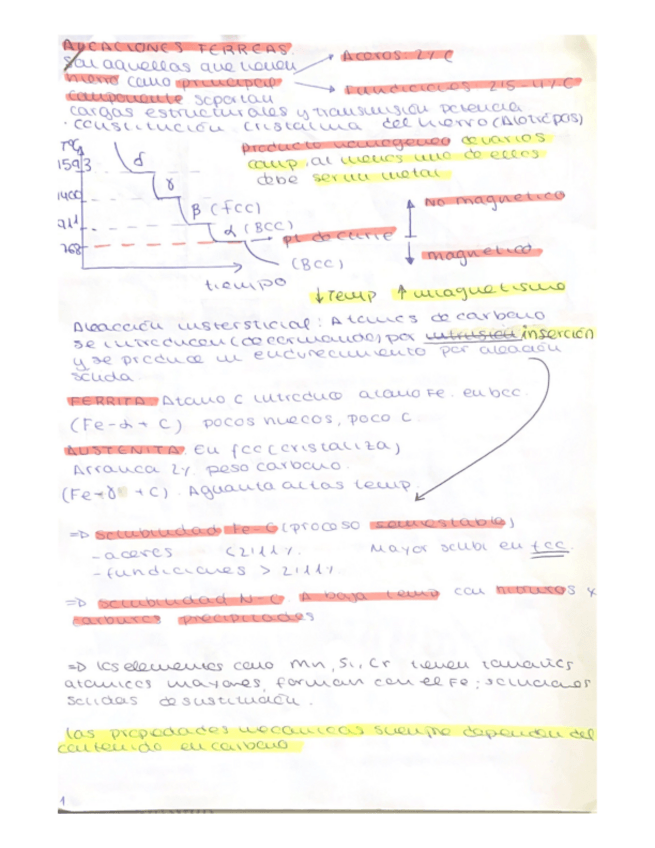 ALEACIONES FERREAS.
Son aquellas que tienen → Aceros 2% C
hierro como principal → Fundiciones 2'5-4% C
componente soportan
cargas estructurales y transmisión potencia
· constitución cristalina del hierro (Alotrópos)
TªC
producto homogeneo de varios
1593
δ
comp, al menos uno de ellos
γ
debe ser un metal
1400
β (fcc)
No magnetico
911
α (BCC)
pt de Curie
768
magnetico
(BCC)
tiempo
↓Temp ↑ magnetismo
Aleación insterstical: Atomos de carbono
se introducen (deformando) por intrusión inserción
y se produce un endurecimiento por aleación
sólida.
FERRITA. Atomo C introduce atomo Fe. en bcc.
(Fe-α + C) pocos huecos, poco C.
AUSTENITA. En fcc (cristaliza)
Arranca 2% peso carbono.
(Fe-γ + C). Aguanta altas temp.
=> Solubilidad Fe-C (proceso semestable)
-aceros <2'11%. Mayor solubi en fcc
-fundiciones > 2'11%
=> Solubilidad N-C. A baja temp con nitruros y
carburos precipitados
=> los elementos como Mn, Si, Cr tienen tamaños
atomicos mayores, forman con el Fe; soluciones
solidas de sustitución.
las propedades mecanicas siempre dependen del
contenido en carbono
1